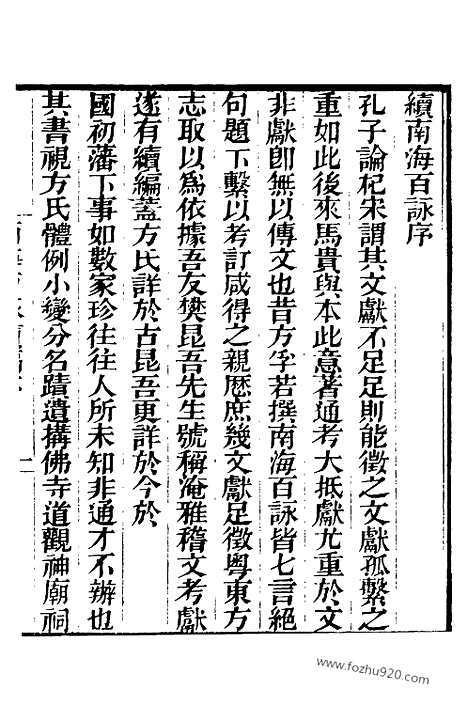 續南海百詠序
孔子論杞宋謂其文獻不足足則能徵之文獻孤繫之
重如此後來馬貴與本此意著通考大抵獻尤重於文
非獻卽無以傳文也昔方孚若撰南海百詠皆七言絕
句題下繫以考訂咸得之親歷庶幾文獻足徵粵東方
志取以爲依據吾友樊昆吾先生號稱淹雅稽文考獻
遂有續編蓋方氏詳於古昆吾更詳於今於
國初藩下事如數家珍往往人所未知非通才不辦也
其書視方氏體例小變分名蹟遺搆佛寺道觀神廟祠
www.fozhu920.com